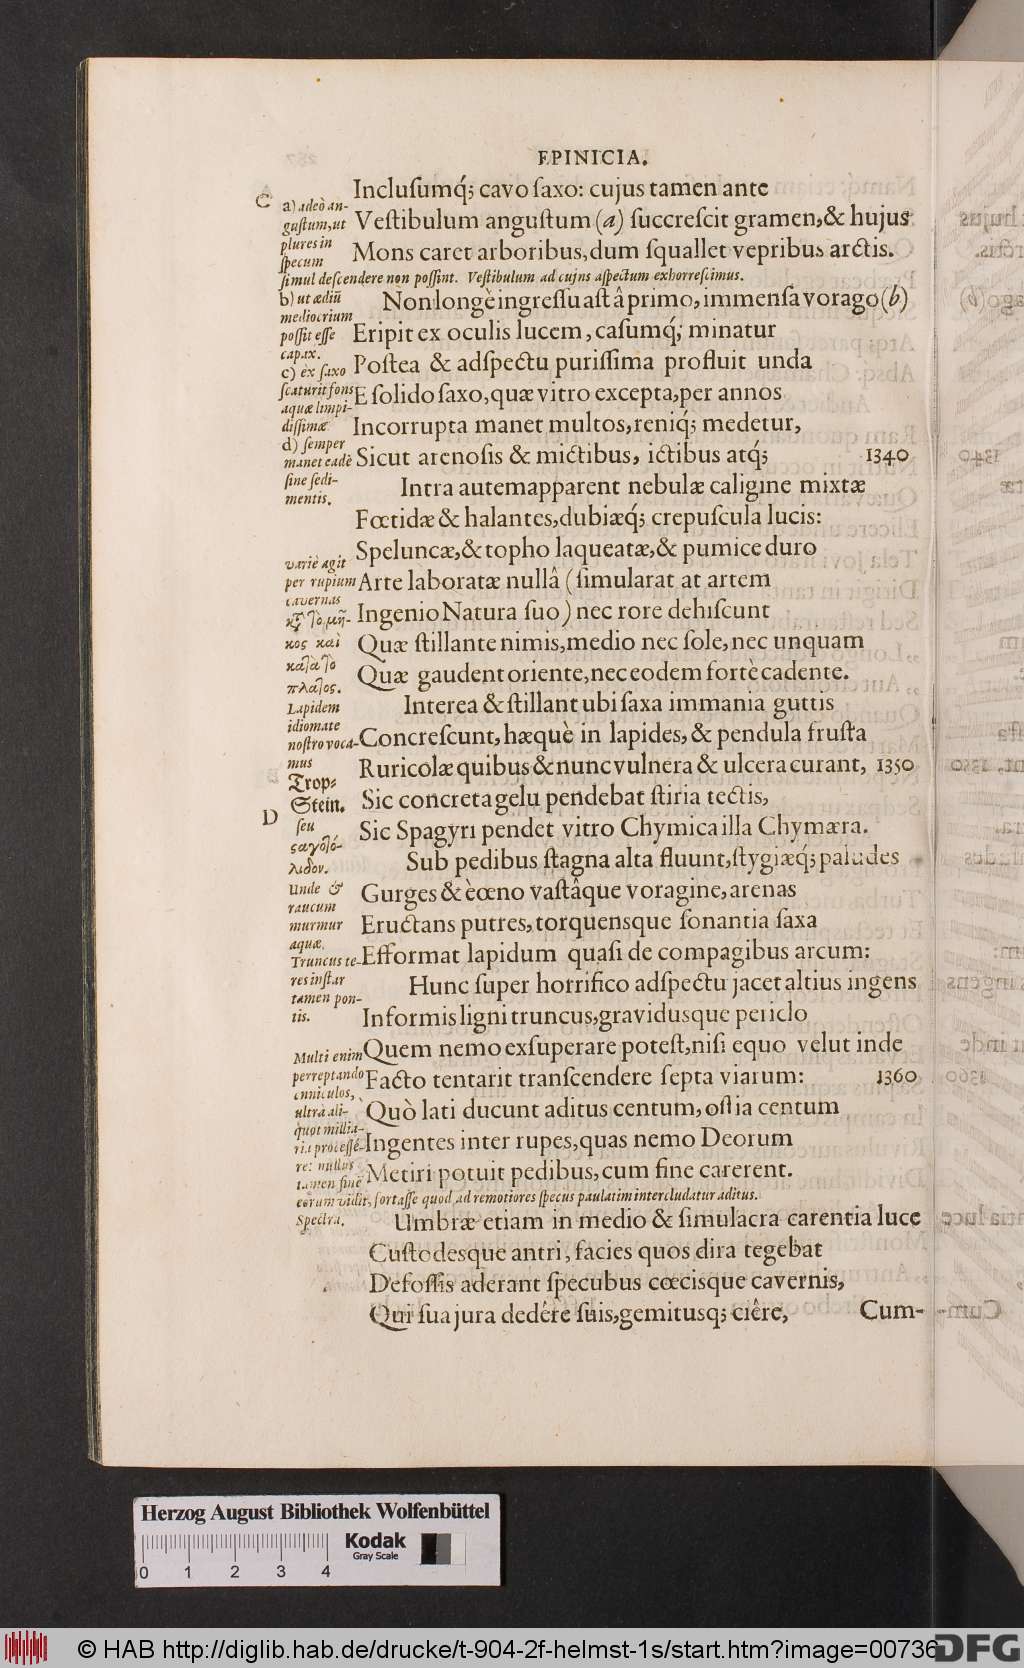 EPINICIA.
Incluſumq́; cavo ſaxo: cujus tamen ante
C
a) adeò an-
guſtum, ut
plures in
ſpecum
ſimul deſcendere non poſſint. Veſtibulum ad cujus aſpectum exhorreſcimus.
Veſtibulum anguſtum (a) ſuccreſcit gramen, & hujus
Mons caret arboribus, dum ſquallet vepribus arctis.
b) ut ædiũ
mediocrium
poſſit eſſe
capax.
c) èx ſaxo
ſcaturit fons
aquæ limpi-
diſſimæ
d) ſemper
manet eadē
ſine ſedi-
mentis.
Non longè ingreſſu aſt â primo, immenſa vorago (b)
Eripit ex oculis lucem, caſumq́; minatur
Poſtea & adſpectu puriſſima profluit unda
E ſolido ſaxo, quæ vitro excepta, per annos
Incorrupta manet multos, reniq́; medetur,
Sicut arenoſis & mictibus, ictibus atq́; 1340
Intra autem apparent nebulæ caligine mixtæ
Fœtidæ & halantes, dubiæq́; crepuſcula lucis:
Speluncæ, & topho laqueatæ, & pumice duro
variè agit
per rupium
cavernas
κỳ τὸ μῆ-
κος καὶ
καὶὰ τὸ
πλάτος.
Lapidem
idiomate
noſtro voca-
mus
Trop-
Stein.
Arte laboratæ nullâ (ſimularat at artem
Ingenio Natura ſuo) nec rore dehiſcunt
Quæ ſtillante nimis, medio nec ſole, nec unquam
Quæ gaudent oriente, nec eodem fortè cadente.
Interea & ſtillant ubi ſaxa immania guttis
Concreſcunt, hæquè in lapides, & pendula fruſta
Ruricolæ quibus & nunc vulnera & ulcera curant, 1350
Sic concreta gelu pendebat ſtiria tectis,
D
ſeu
ςαγολό-
λιθον.
Unde &
raucum
murmur
aquæ.
Truncus te-
res inſtar
tamen pon-
tis.
Sic Spagyri pendet vitro Chymica illa Chymæra.
Sub pedibus ſtagna alta fluunt, ſtygiæq́; paludes
Gurges & è cœno vaſtâque voragine, arenas
Eructans putres, torquensque ſonantia ſaxa
Efformat lapidum quaſi de compagibus arcum:
Hunc ſuper horrifico adſpectu jacet altius ingens
Informis ligni truncus, gravidusque periclo
Multi enim
perreptando
cuniculos,
ultrà ali-
quot millia-
ria proceſſé-
re: nullus
tamen finē
eorum vidit, fortaſſe quod ad remotiores ſpecus paulatim intercludatur aditus.
Quem nemo exſuperare poteſt, niſi equo velut inde
Facto tentarit tranſcendere ſepta viarum: 1360
Quò lati ducunt aditus centum, oſtia centum
Ingentes inter rupes, quas nemo Deorum
Metiri potuit pedibus, cum fine carerent.
Spectra.
Umbræ etiam in medio & ſimulacra carentia luce
Cuſtodesque antri, facies quos dira tegebat
Defoſſis aderant ſpecubus cœcisque cavernis,
Qui ſua jura dedêre ſuis, gemitusq; ciêre,
Cum-
Herzog August Bibliothek Wolfenbüttel
Kodak
Gray Scale
0 1 2 3 4
© HAB http://diglib.hab.de/drucke/t-904-2f-helmst-1s/start.htm?image=00736
DFG